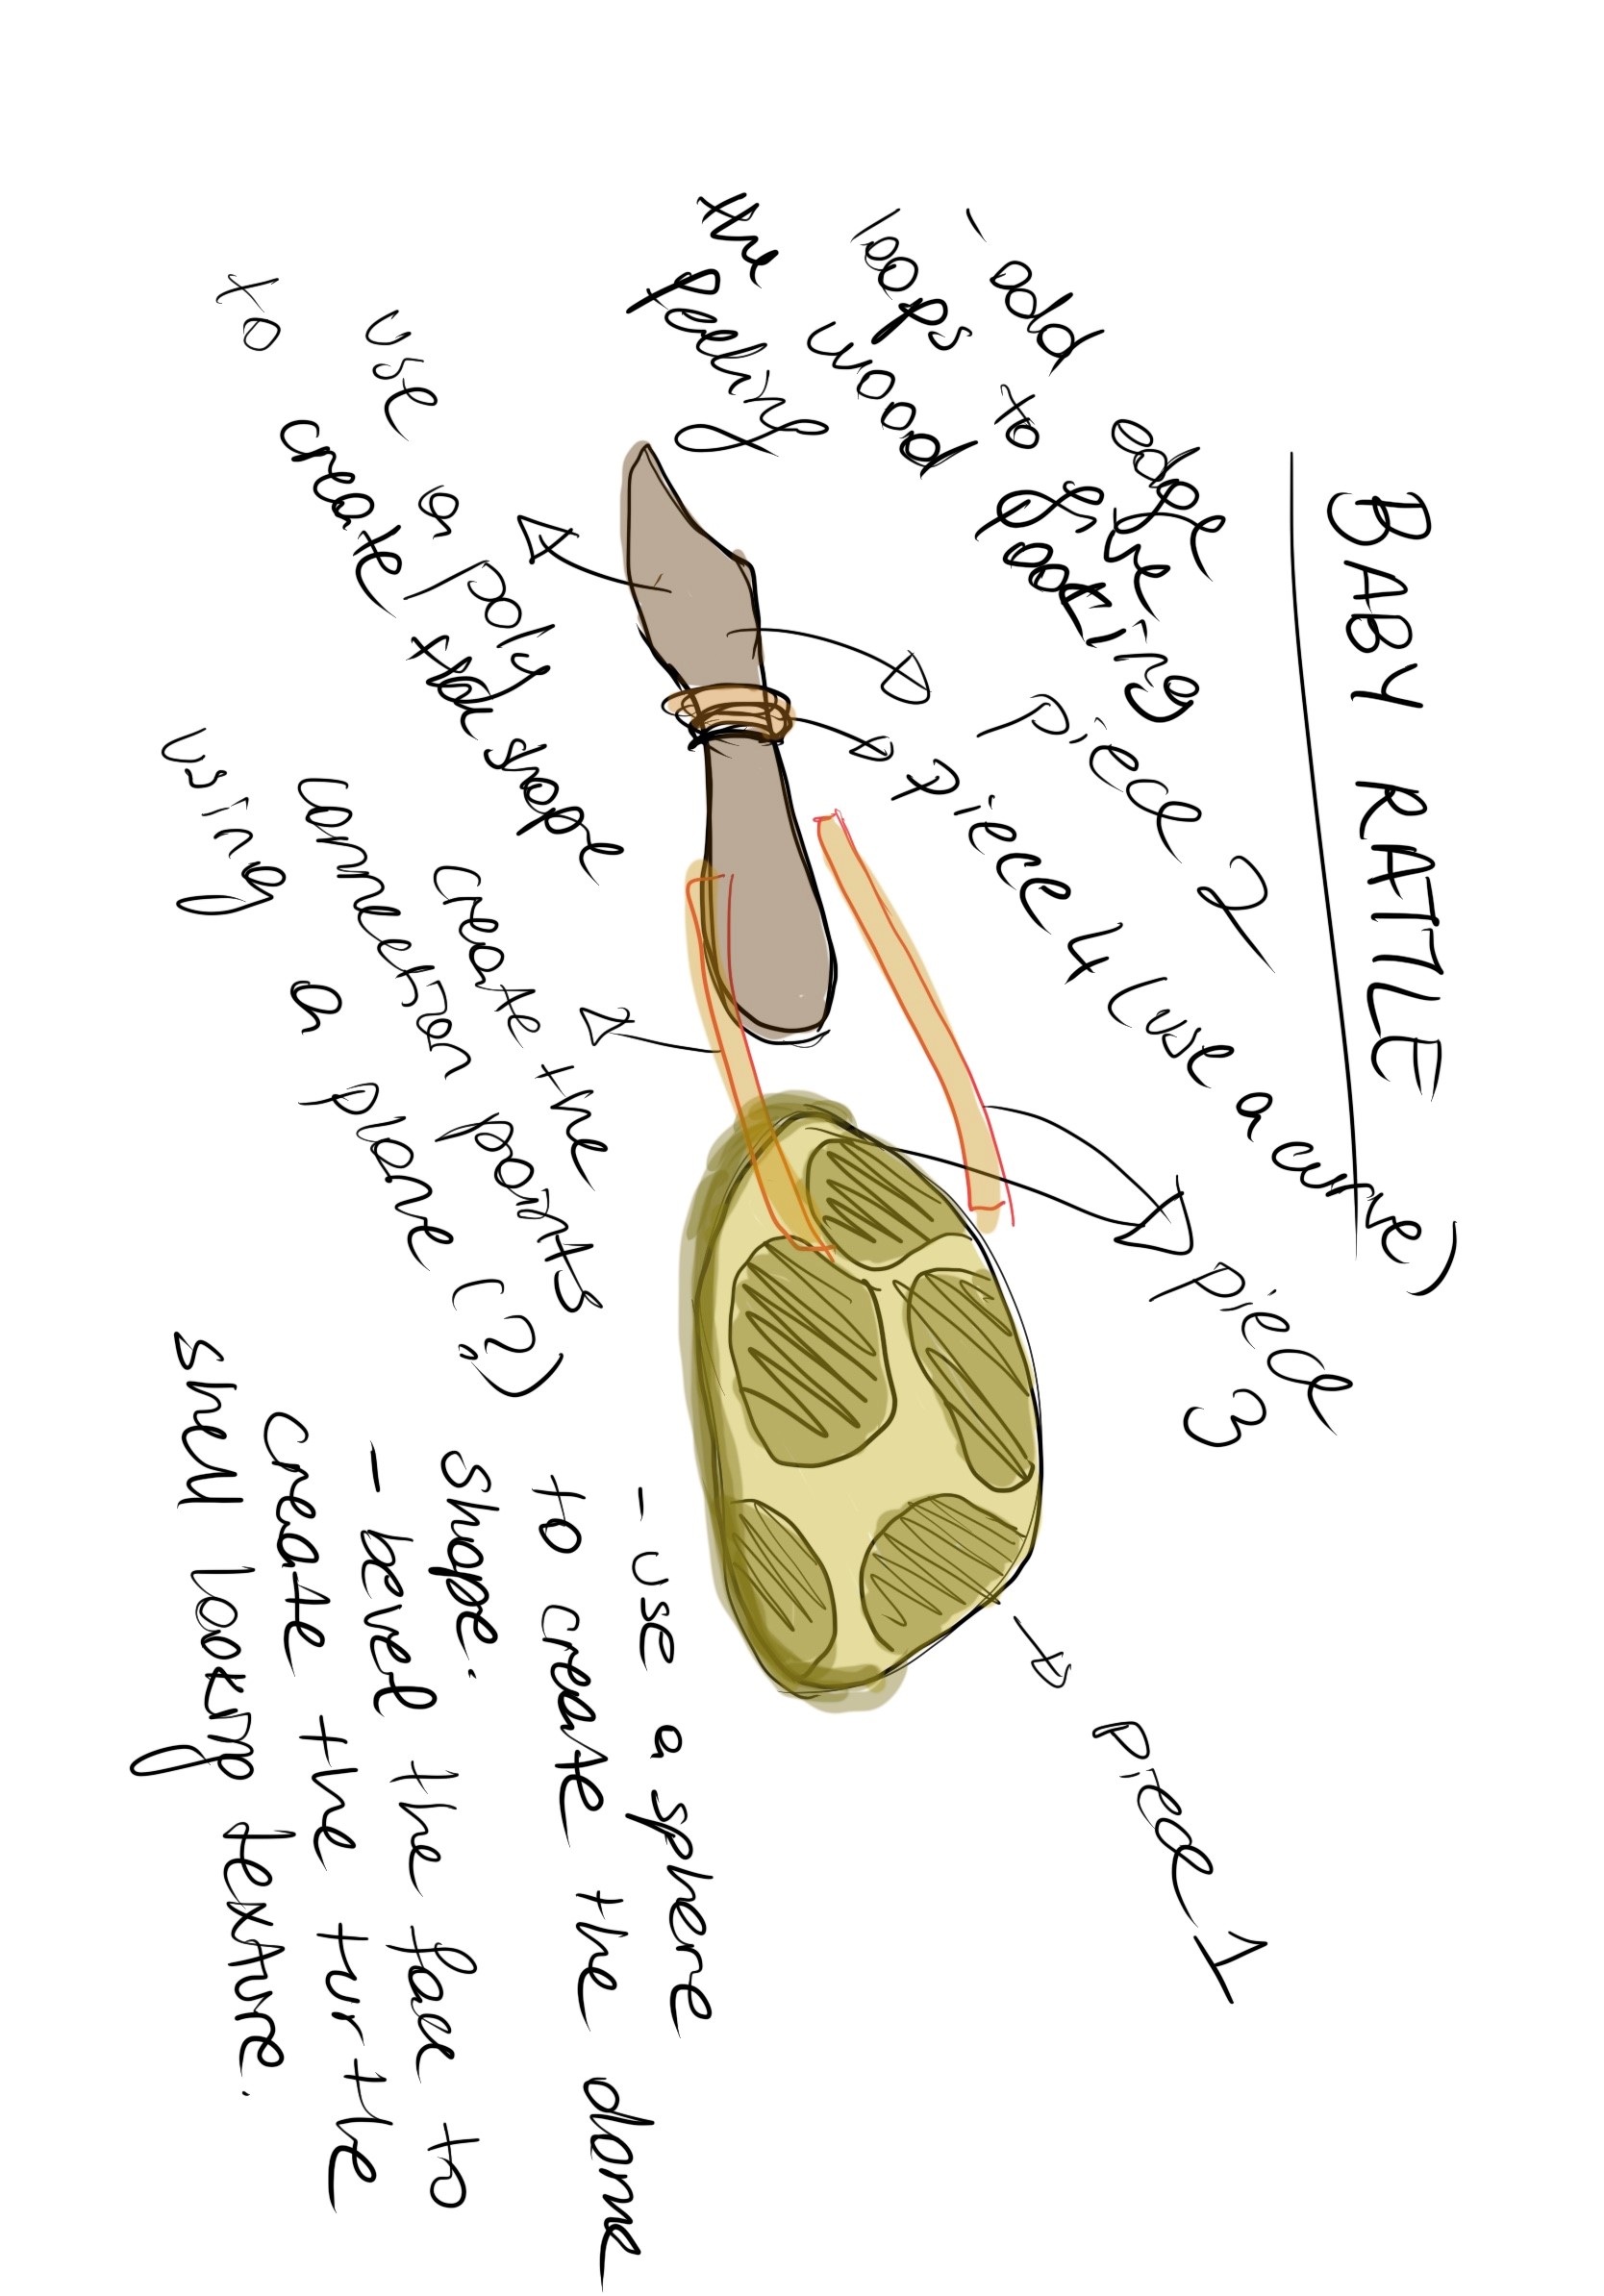 BABY RATTLE
- add edge
loops to give the
wood looking
the feeling
piece 2
piece 4 (use a curve)
piece 3
piece 1
use a poly
to create the shape
create the
connection parts
using a plane (?)
- use a sphere
to create the dome
shape.
- bevel the face to
create the turtle
shell looking texture.